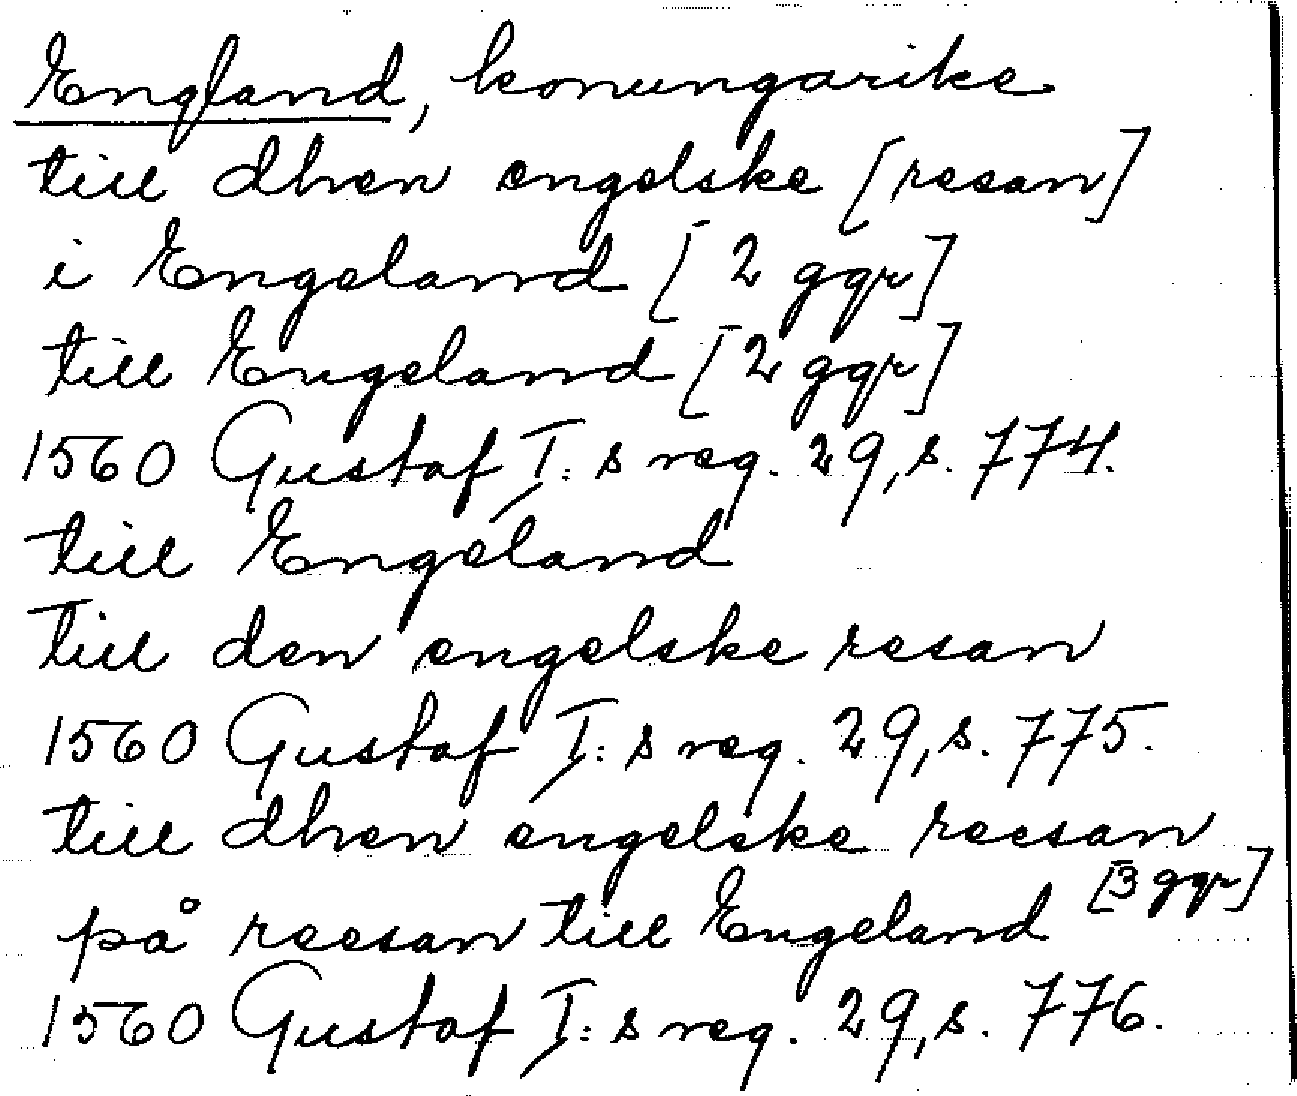 England, konungarike
till dhen engelske [resan]
i Engeland [2 ggr]
till Engeland [2 ggr]
1560 Gustaf I:s reg. 29, s. 774.
till Engeland
till den engelske resan
1560 Gustaf I:s reg. 29, s. 775.
till dhen engelske reesan
[3 ggr]
på reesan till Engeland
1560 Gustaf I:s reg. 29, s. 776.